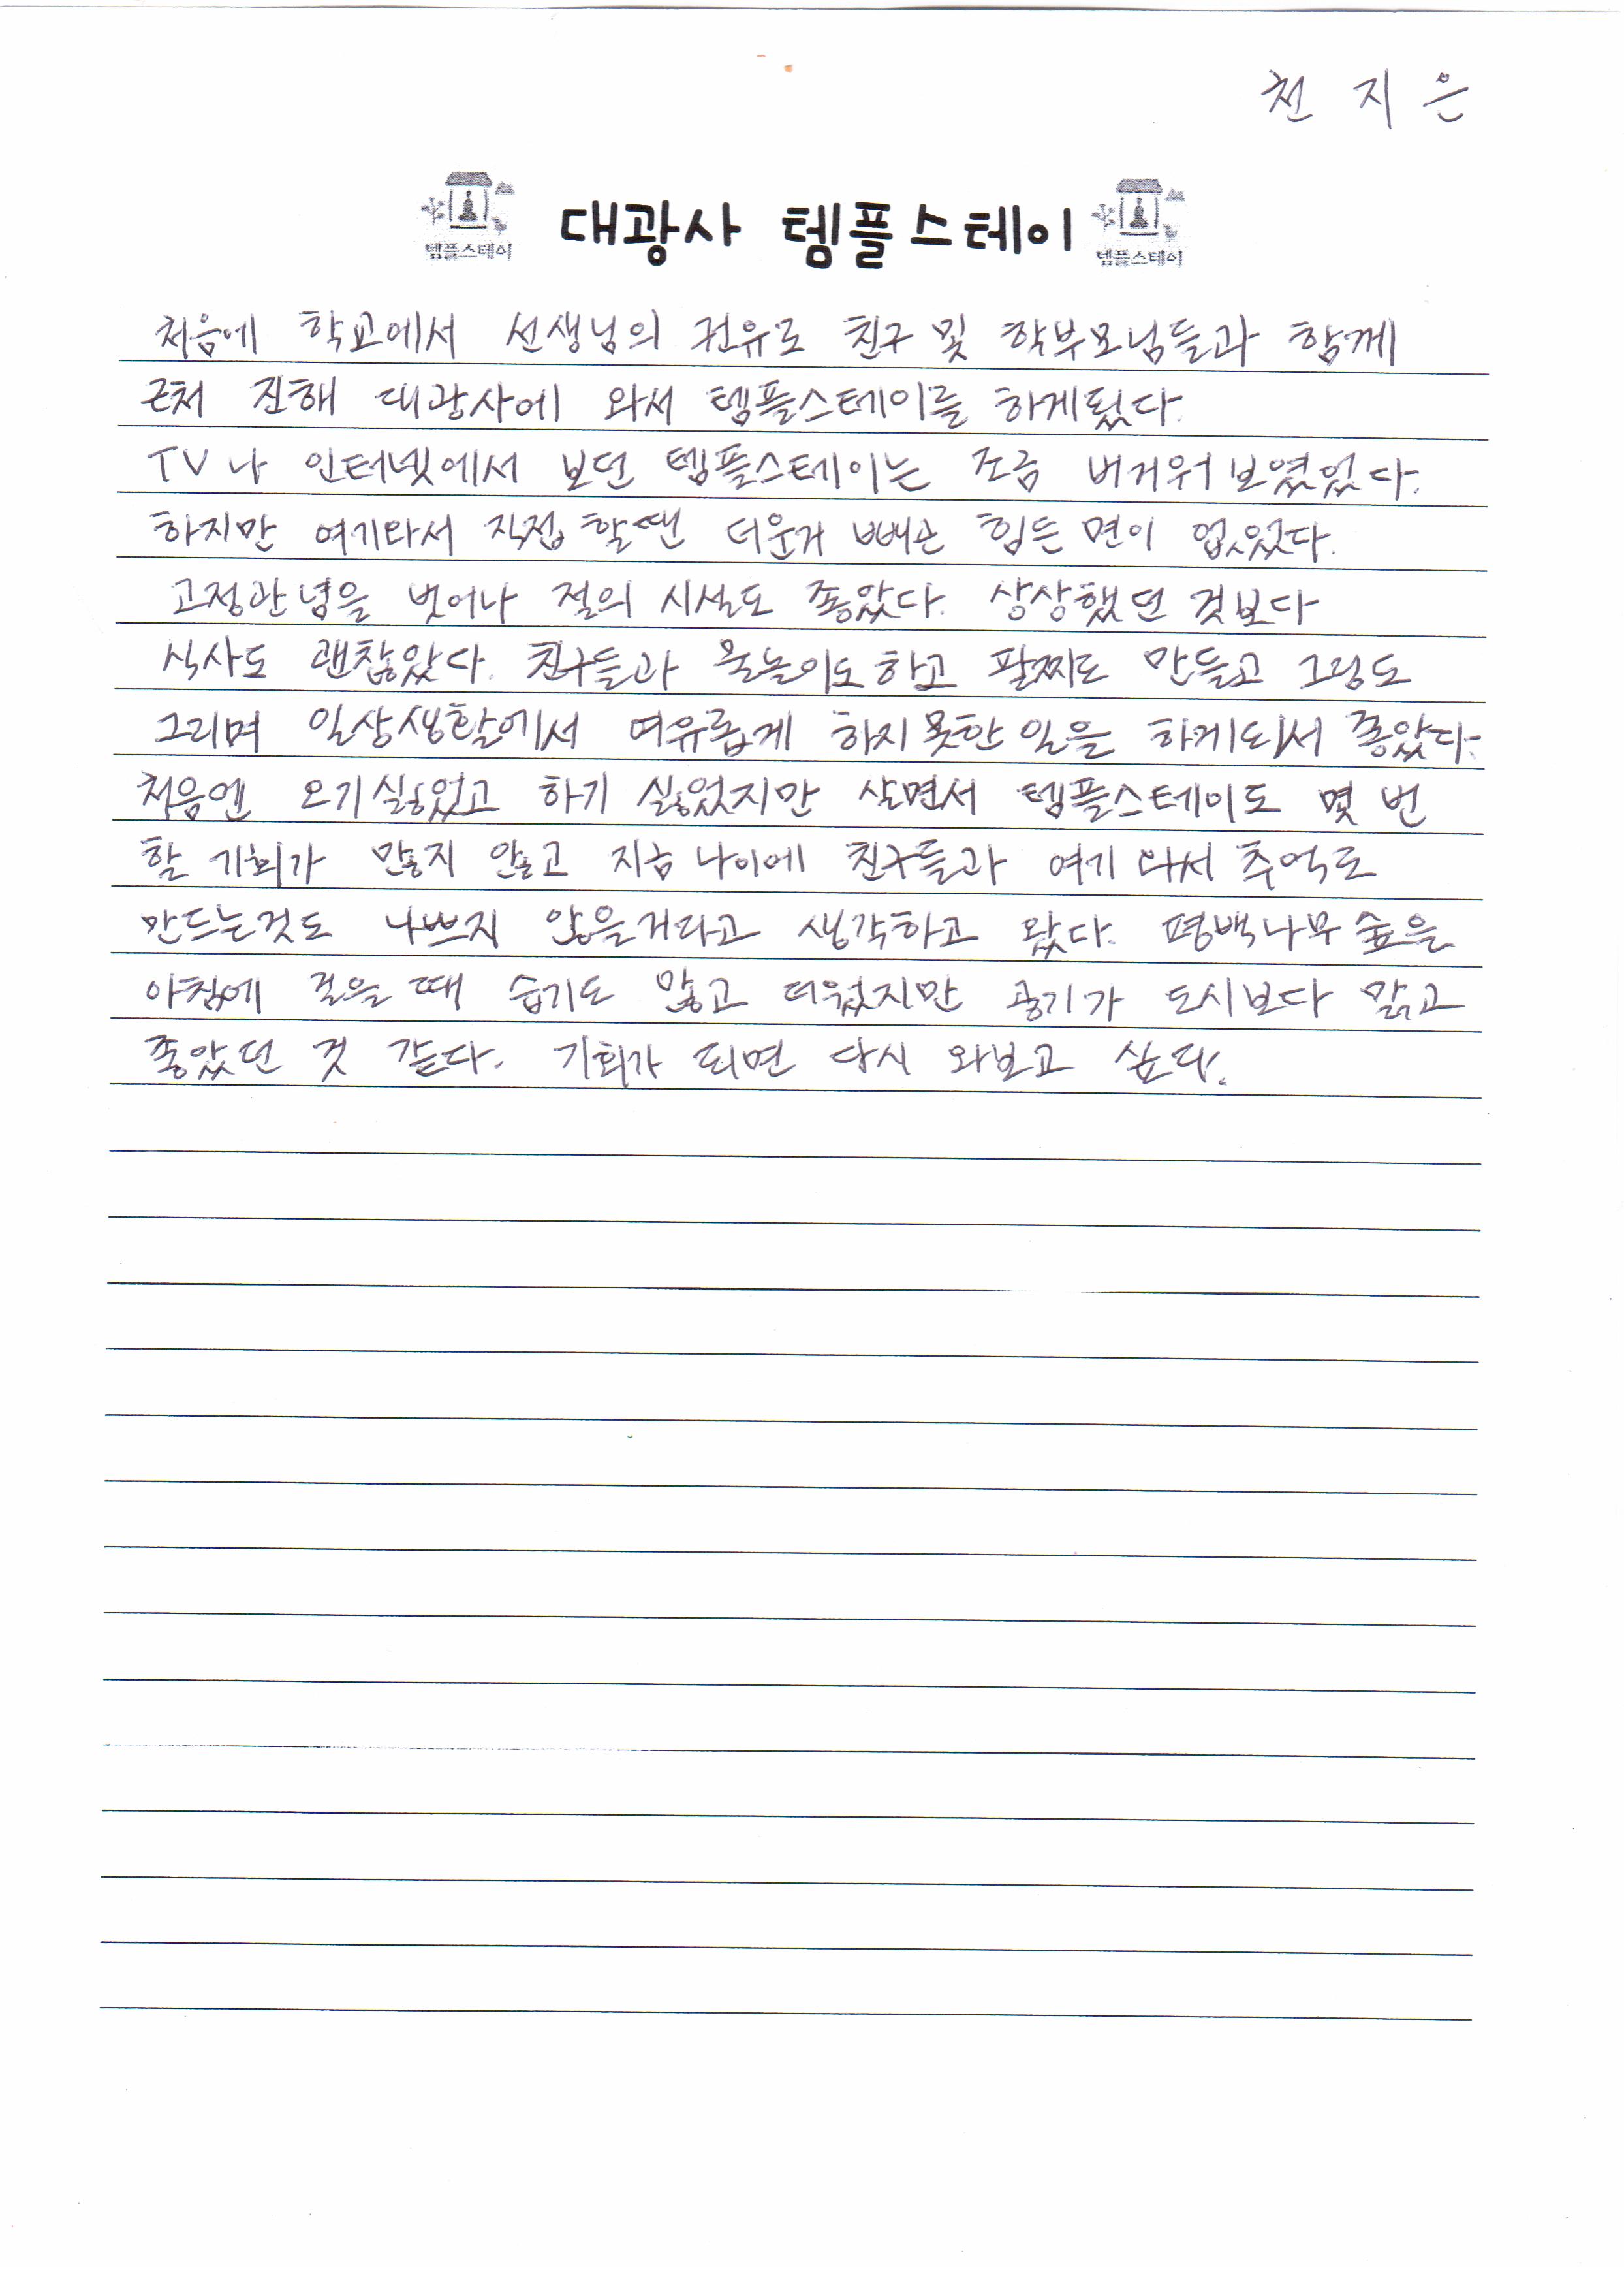 천 지 은
템플스테이 대광사 템플스테이 템플스테이
처음에 학교에서 선생님의 권유로 친구 및 학부모님들과 함께
근처 진해 대광사에 와서 템플스테이를 하게됬다.
TV나 인터넷에서 보던 템플스테이는 조금 버거워 보였었다.
하지만 여기와서 직접 할땐 더운거 빼곤 힘든 면이 없었다.
고정관념을 벗어나 절의 시설도 좋았다. 상상했던 것보다
식사도 괜찮았다. 친구들과 물놀이도 하고 팔찌도 만들고 그림도
그리며 일상생활에서 여유롭게 하지 못한 일을 하게되서 좋았다.
처음엔 오기싫었고 하기 싫었지만 살면서 템플스테이도 몇 번
할 기회가 많지 않고 지금 나이에 친구들과 여기 와서 추억로
만드는것도 나쁘지 않을거라고 생각하고 왔다. 평백나무 숲을
아침에 걸을 때 습기도 많고 더웠지만 공기가 도시보다 맑고
좋았던 것 같다. 기회가 되면 다시 와보고 싶다.